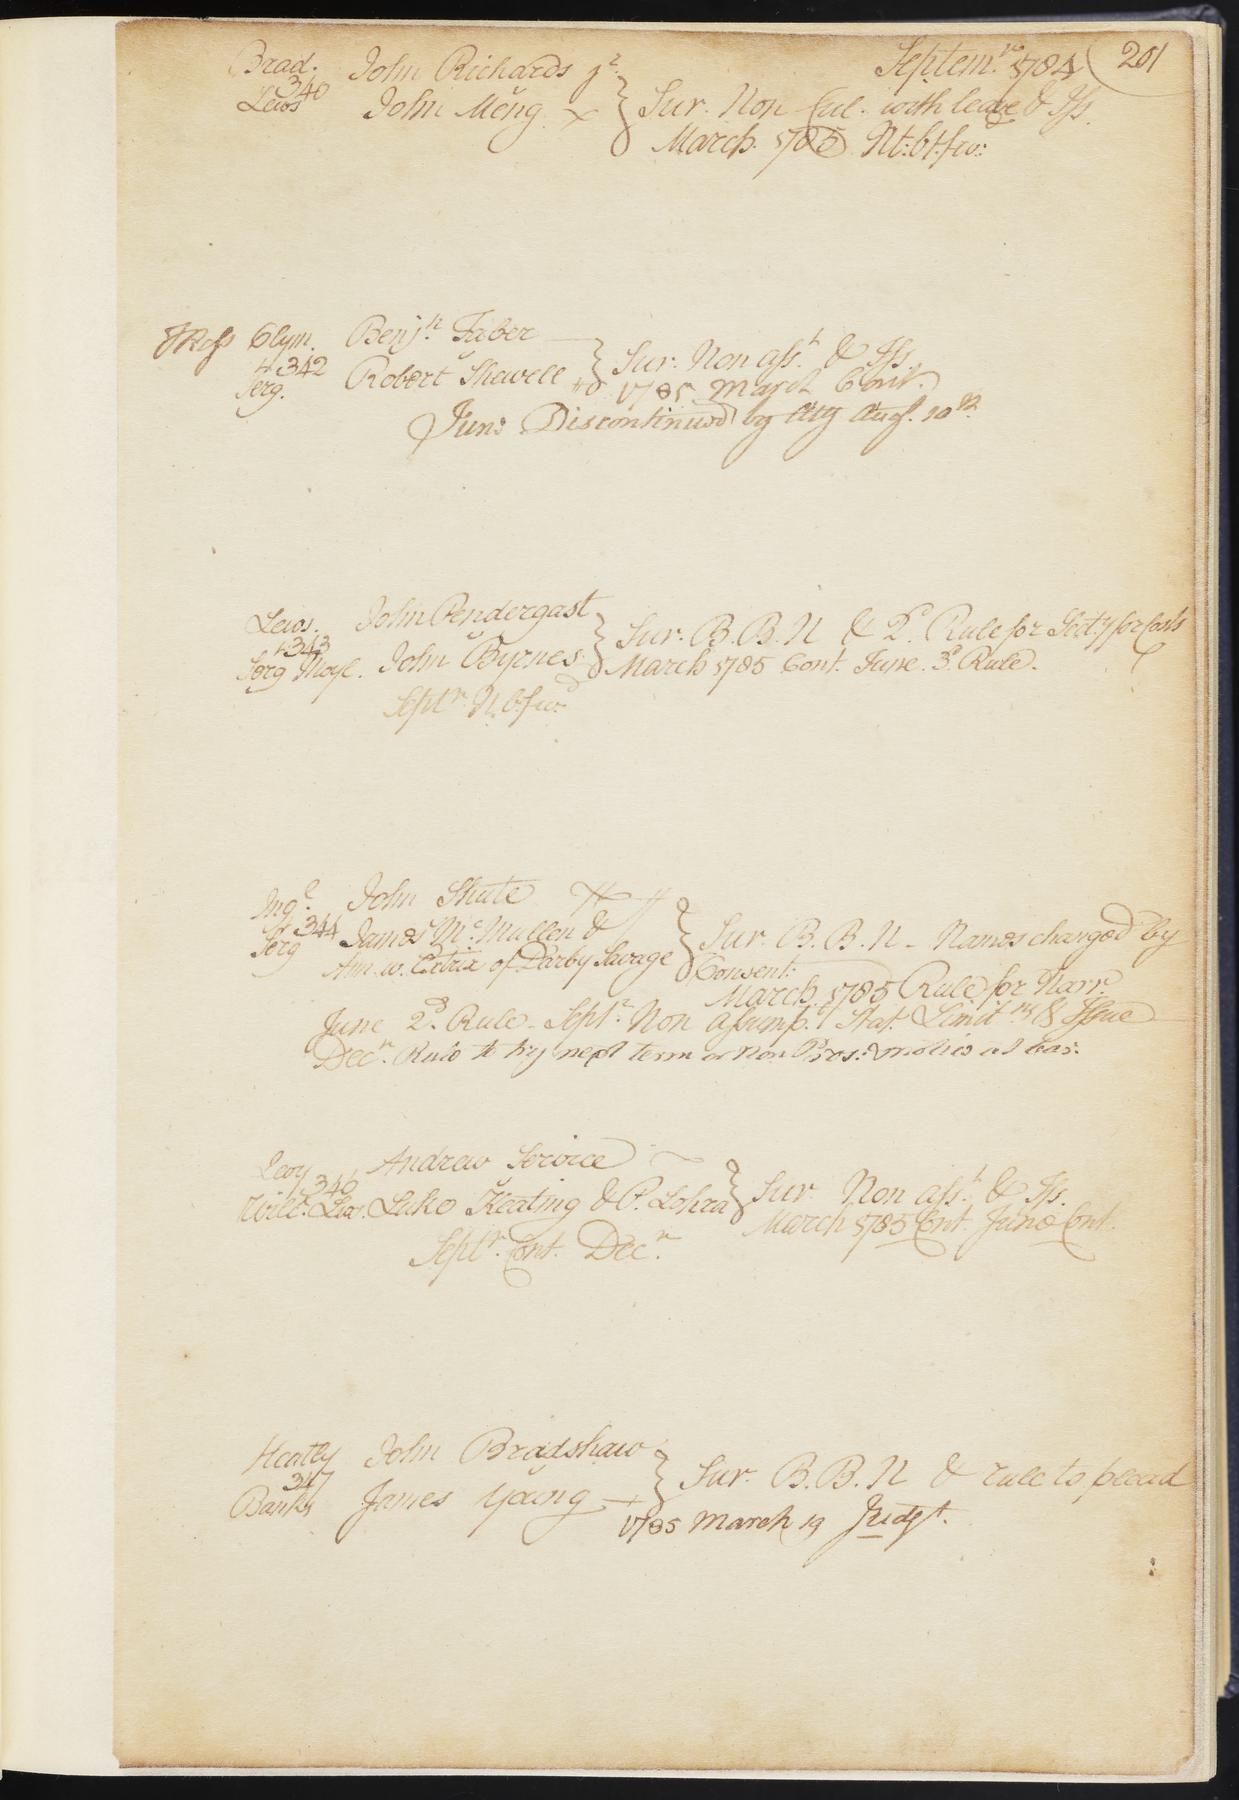 Septemr. 1784 (201
Brad. John Richards
340
Lewis John Meng x } Sur. Non Cul. with leave & Iss.
March 1785 Nt. bt. fwd.
Clym. Benjn. Faber
342
Serg. Robert Shewell } Sur. Non asst. & Iss.
1785 March Cont.
June Discontinued by Atty Augt. 10th.
Lewis. John Pendergast
343
Serg Moyl. John Byrnes } Sur. B. B. N & 2d. Rule for Secty for Costs
March 1785 Cont. June. 3d. Rule.
Septr. N. b. fwd
Ingl. John Shute
344
Serg James McMullen &
Ann w. Extrix of Darby Savage } Sur. B. B. N - Names changed by
Consent.
March 1785 Rule for Narr.
June 2d. Rule - Septr. Non assumpt. Stat. Limitns & Issue
Decr. Rule to try next term or non Pros. & notice at bar.
Levy Andrew Service
346
Wilc. Lew. Luke Keating & P. Lohra } Sur. Non asst. & Iss.
March 1785 Cont. June Cont.
Septr. Cont. Decr.
Heatly John Bradshaw
347
Banks James Young } Sur. B. B. N & rule to plead
1785 March 19 Judgt.